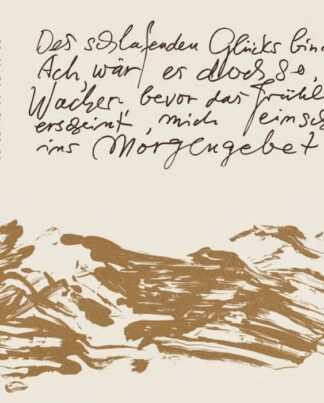 Des schlafenden Glücks bin
Ach, wär es doch so,
Wachen, bevor das Frühl
erscheint, mich einsch
ins Morgengebet